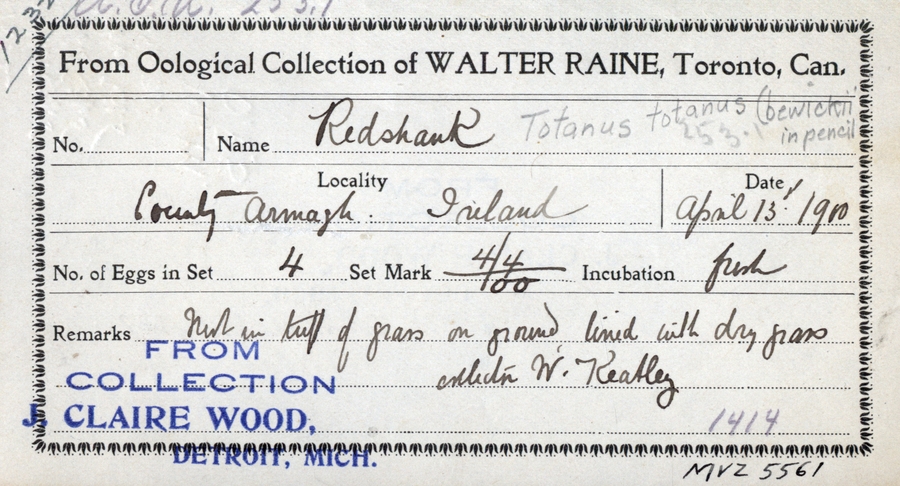 253.1
From Oological Collection of WALTER RAINE, Toronto, Can.
No. Name Redshank Totanus totanus (bewickii
253.1 in pencil
Locality Date
County Armagh. Ireland April 13. 1900
No. of Eggs in Set 4 Set Mark 4/4/00 Incubation fresh
Remarks Nest in tuft of grass on ground, lined with dry grass
collector W. Keatley
FROM
COLLECTION
J. CLAIRE WOOD,
DETROIT, MICH.
1414
MVZ 5561